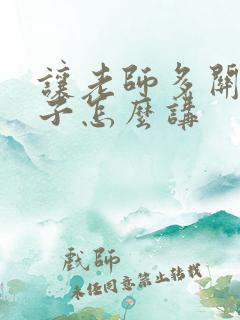 讓老師多關
子怎麼講
戲師
未任同意禁止转载